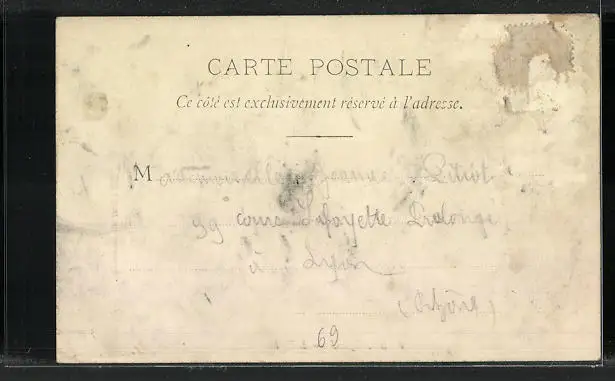 CARTE POSTALE
Ce côté est exclusivement réservé à l'adresse.
Mademoiselle Jeanne
99 cours Lafayette Prolongé
à Lyon
(Rhône)
69